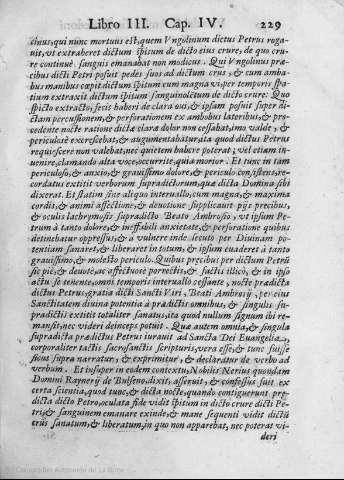 Libro III. Cap. IV. 229
cinus, qui nunc mortuus est, quem Vngolinum dictus Petrus roga-
uit, vt extraheret dictum spitum de dicto eius crure, de quo cru-
re continuè sanguis emanabat non modicus. Qui Vngolinus præ-
cibus dicti Petri posuit pedes suos ad dictum crus, & cum amba-
bus manibus cœpit dictum spitum cum magna vi, per temporis spa-
tium extraxit dictum spitum sanguinolẽtum de dicto crure: Quo
spicto extracto, fecit haberi de clara oui, & ipsam posuit super di-
ctam percussionem, & perforationem ex ambobus lateribus, & pro-
cedente nocte ratione dictæ claræ dolor non cessabat, imo valdè, &
periculosè exarcescebat, & augumentabatur, ita quod dictus Petrus
requiescere non valebat, nec quietem habere poterat; vel etiam in-
uenire, clamando alta voce, occurrite, quia morior. Et tunc in tam
periculoso, & anxio, & grauissimo dolore, & periculo consistens, re-
cordatus extitit verborum supradictorum, quæ dicta Domina sibi
dixerat. Et statim sine aliquo interuallo, cum magna, & maxima
cordis, & animi affectione, & deuotione supplicauit pijs precibus,
& oculis lachrymosis supradicto Beato Ambrosio, vt ipsum Pe-
trum à tanto dolore, & ineffabili anxietate, & perforatione quibus
detinebatur oppressus, & à vulnere inde secuto per Diuinam po-
tentiam sanaret, & liberaret in totum, & ipsum euaderet à tanto
grauissimo, & molesto periculo. Quibus precibus per dictum Petrũ
sic piè, & deuotè, ac affectuosè porrectis, & factis illicò, & in ipso
actu se tenente, omni temporis interuallo cessante, nocte prædicta
dictus Petrus, gratia dicti Sancti Viri, Beati Ambrosij, per eius
Sanctitatem diuina potentia à prædictis omnibus, & singulis su-
pradictis extitit totaliter sanatus, ita quod nullum signum ibi re-
mansit, nec videri deinceps potuit. Quæ autem omnia, & singula
supradicta prædictus Petrus iurauit ad Sancta Dei Euangelia,
corporaliter tactis sacrosanctis scripturis, vera esse, & tunc fuisse
sicut supra narratum, & exprimitur, & declaratur de verbo ad
verbum. Et insuper in eodem contextu, Nobilis Nerius quondam
Domini Raynerij de Bulseno, dixit, asseruit, & confessus fuit ex
certa scientia, quod tunc, & dicta nocte, quando contiguerunt præ-
dicta dicto Petro, oculata fide vidit spitum in dicto crure dicti Pe-
tri, & sanguinem emanare exinde, & mane sequenti vidit dictũ
crus sanatum, & liberatum, in quo non apparebat, nec poterat vi-
deri